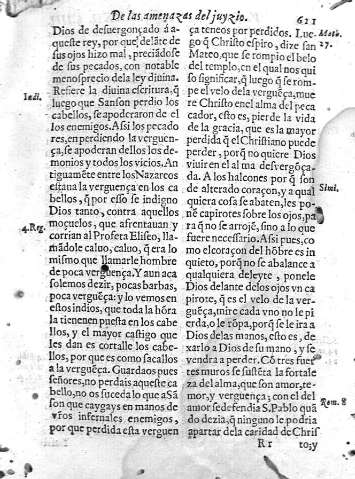 De las amenazas del juyzio. 611
Dios de desuergonçado à a-
queste rey, porque, delãte de
sus ojos hizo mal, preciãdose
de sus pecados, con notable
menosprecio dela ley diuina.
Iudi.
Refiere la diuina escritura, q̃
luego que Sanson perdio los
cabellos, se apoderaron de el
los enemigos. Assi los pecado
res, en perdiendo la verguen-
ça, se apoderan dellos los de-
monios y todos los vicios. An
tiguamẽte entre los Nazarcos
estaua la verguença en los ca
bellos, q̃ por esso se indigno
Dios tanto, contra aquellos
moçuelos, que afrentauan y
4. Reg.
corrian al Profeta Eliseo, lla-
mãdole caluo, caluo, q̃ era lo
mismo que llamarle hombre
de poca verguença. Y aun aca
solemos dezir, pocas barbas,
poca verguẽça: y lo vemos en
estos indios, que toda la hõra
la tienenen puesta en los cabe
llos, y el mayor castigo que
les dan es cortalle los cabe-
llos, por que es como sacallos
a la verguẽça. Guardaos pues
señores, no perdais aqueste ca
bello, no os suceda lo que a Sã
son que caygays en manos de
vr̃os infernales enemigos,
por que perdida esta verguen
ça teneos por perdidos. Luc-
Math.
go q̃ Christo espiro, dize san
27.
Mateo, que se rompio el belo
del templo, en el qual nos qui
so significar, q̃ luego q̃ se rom-
pe el velo dela verguẽça, mue
re Christo en el alma del peca
cador, esto es, pierde la vida
de la gracia, que es la mayor
perdida q̃ el Christiano puede
perder, porq̃ no quiere Dios
viuir en el alma desvergõça-
da. A los halcones por q̃ son
Simi.
de alterado coraçon, y a qual
quiera cosa se abaten, les po-
nẽ capirotes sobre los ojos, pa
ra q̃ no se arrojẽ, sino a lo que
fuere necessario. Assi pues, co
mo el coraçon del hõbre es in
quieto, porq̃ no se abalance a
qualquiera deleyte, ponele
Dios delante delos ojos vn ca
pirote, q̃ es el velo de la ver-
guẽça, mire cada vno no le pi
erda, o le rõpa, porq̃ se le ira a
Dios delas manos, esto es, de
xarlo a Dios de su mano, y se
vendra a perder. Cõ tres fuer
tes muros se sustẽta la fortale
za del alma, que son amor, te-
mor, y verguença; con el del
Rom. 8
amor se defendia S. Pablo quã
do dezia, q̃ ninguno le podria
apartar de la caridad de Chris
R r to; y